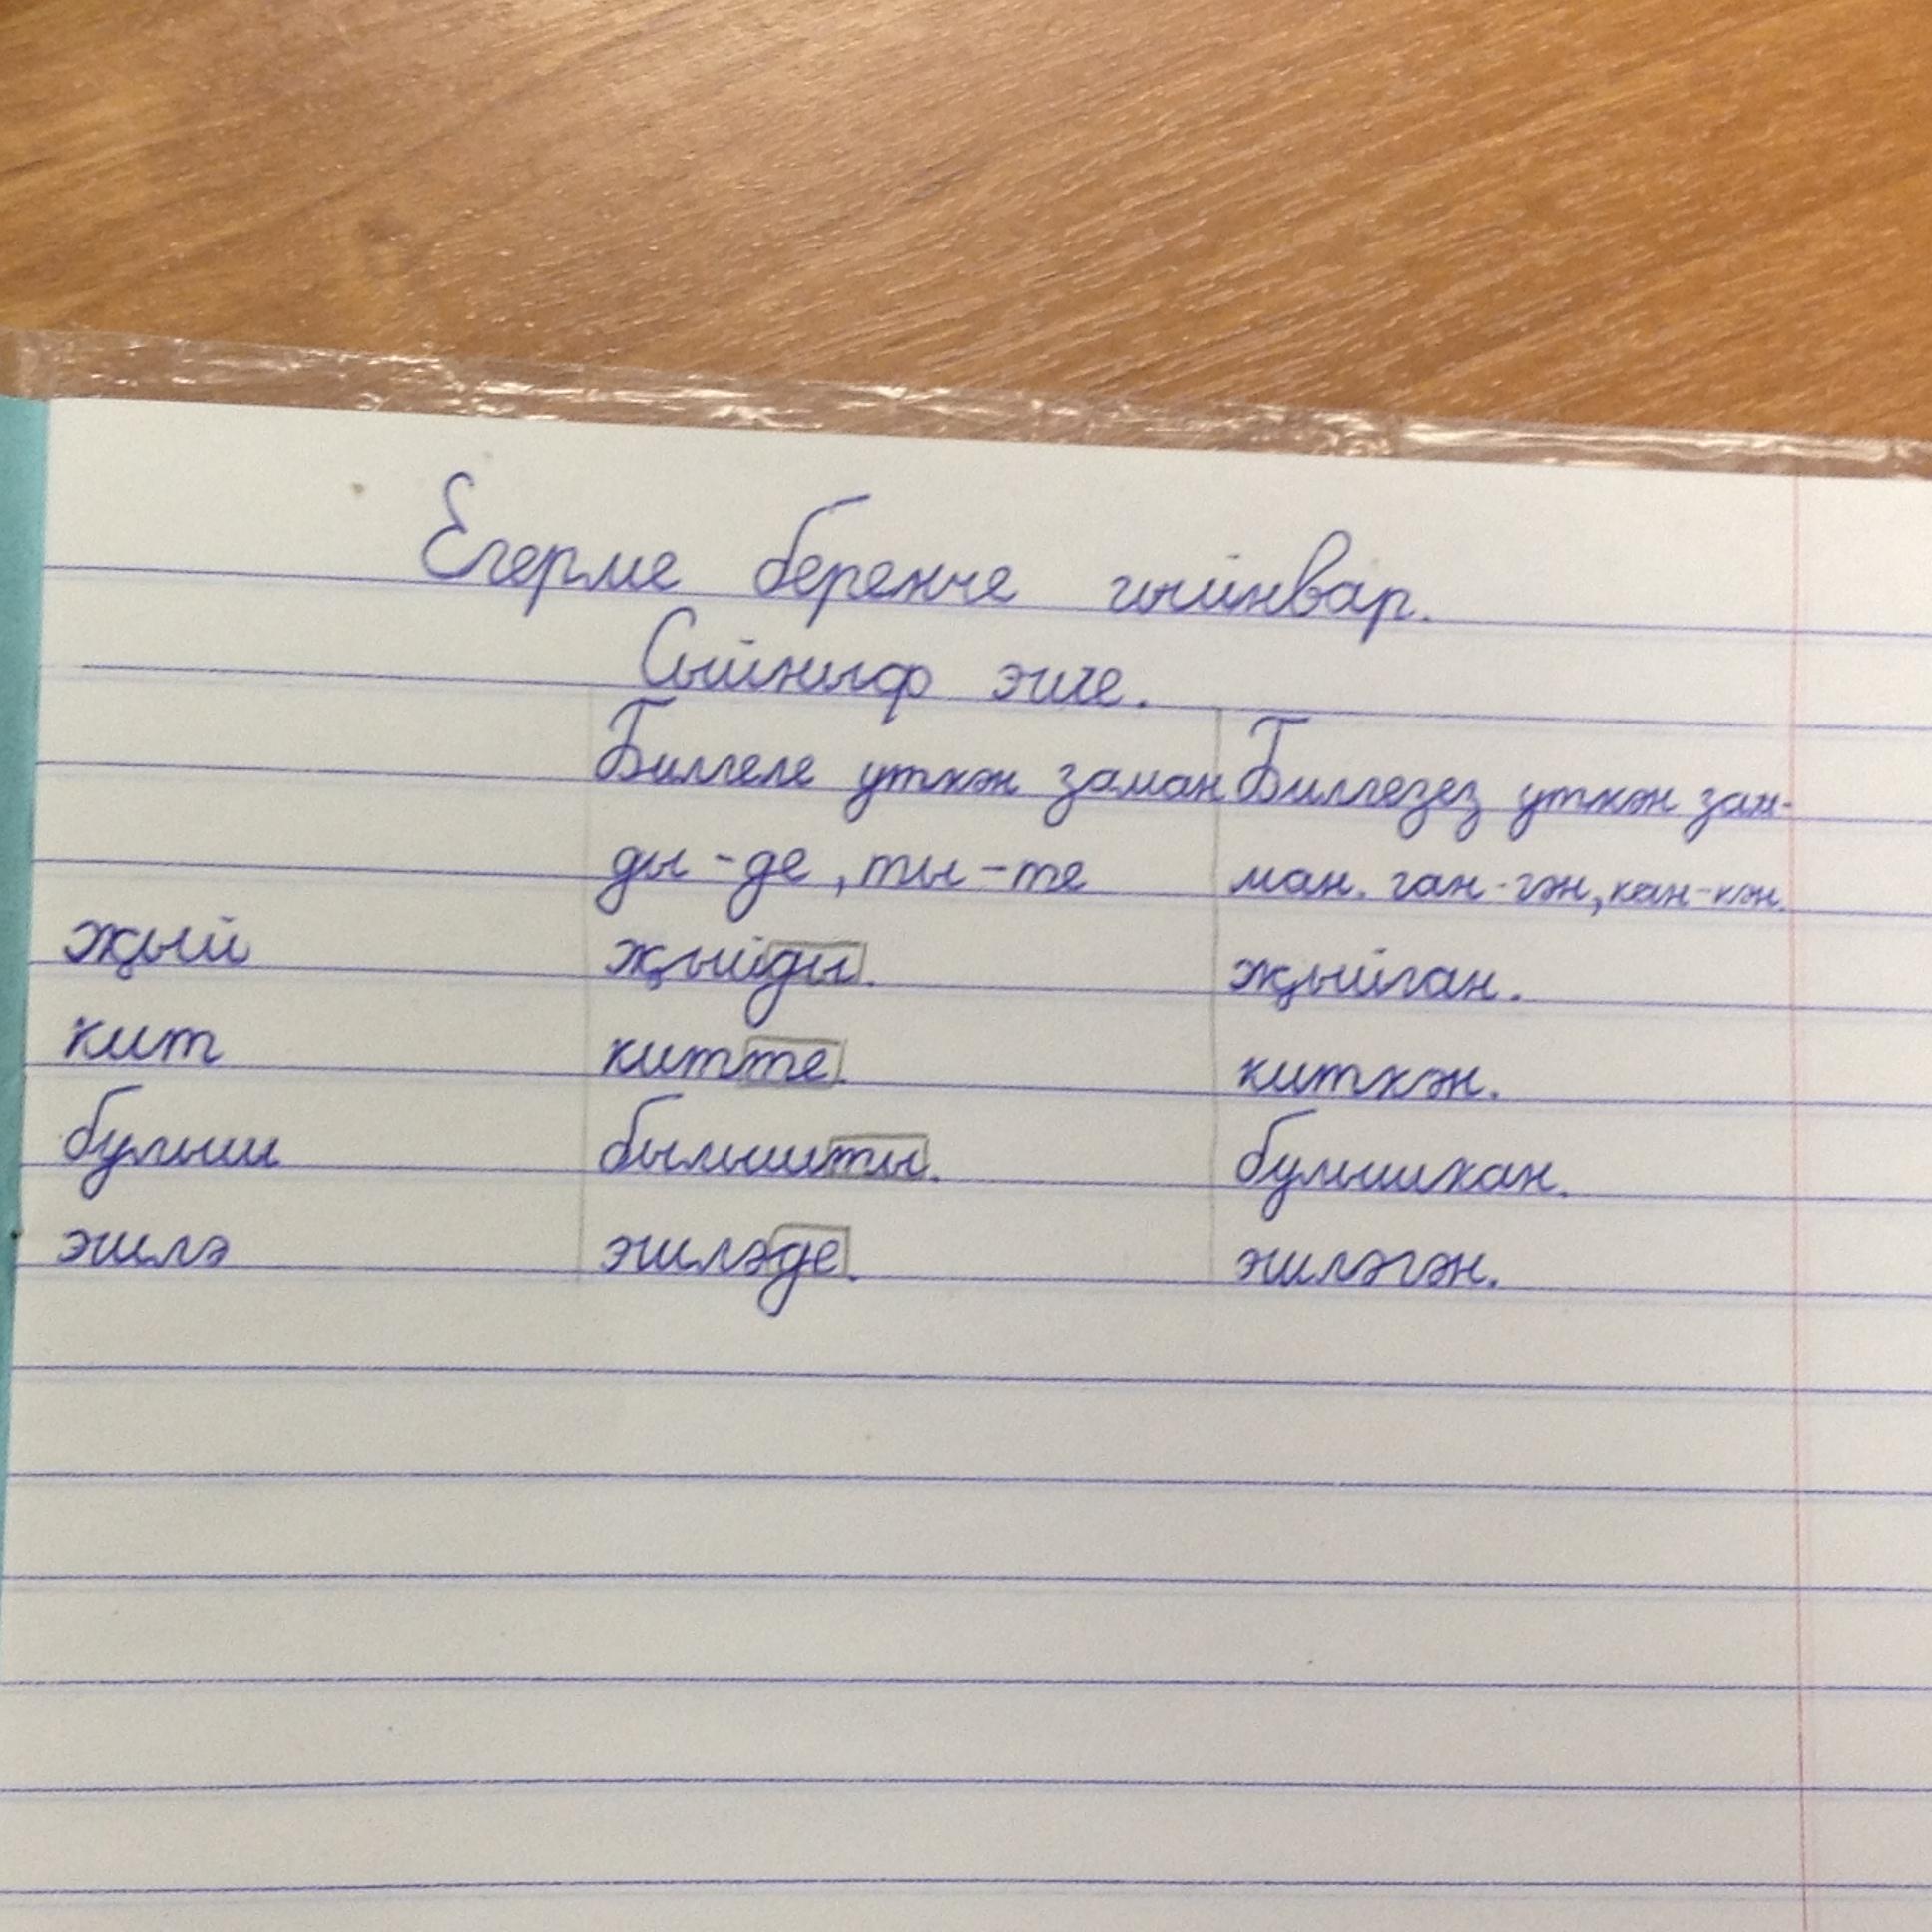 Егерме беренче гыйнвар.
Сыйныф эше.
Билгеле үткән заман Билгезез үткән зам-
ды - де, ты - те ман. ган - гән, кан - кән.
җый җыйды. җыйган.
кит китте. киткән.
булыш былышты. булышкан.
эшлә эшләде. эшләгән.